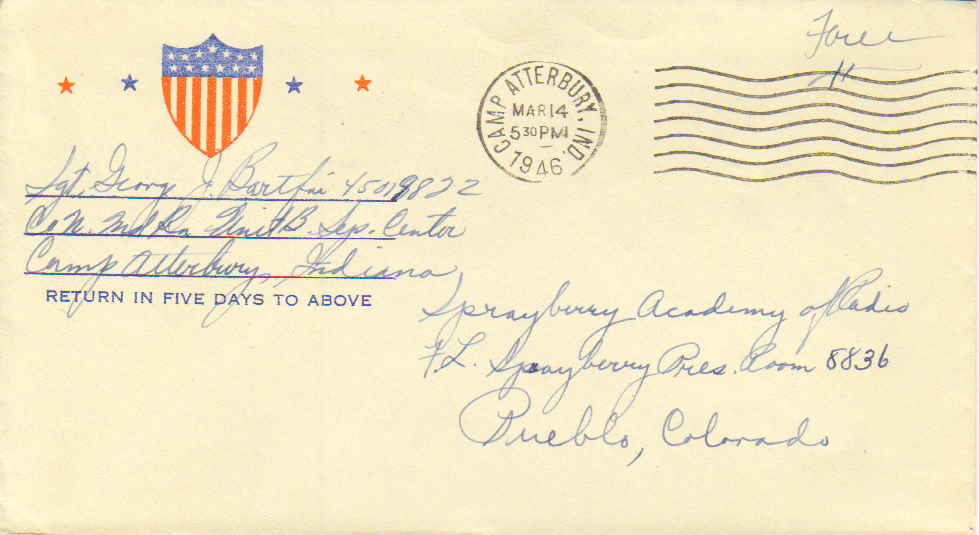 Free
CAMP ATTERBURY, IND.
MAR 14
5 30 PM
1946
Sgt. George J. Bartfai 45019822
Co N. Unit B. Sep. Center
Camp Atterbury, Indiana
RETURN IN FIVE DAYS TO ABOVE
Sprayberry Academy of Radio
F.L. Sprayberry Pres. Room 8836
Pueblo, Colorado